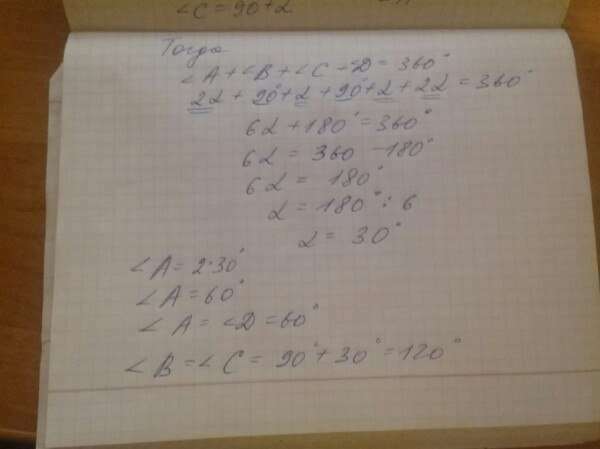 ∠C = 90+α
Тогда
∠A+∠B+∠C+∠D=360°
2α + 90°+α+90°+α+2α=360
6α+180°=360°
6α = 360-180°
6α = 180°
α = 180° : 6
α = 30°
∠A = 2·30°
∠A = 60°
∠A = ∠D = 60°
∠B = ∠C = 90°+30°=120°